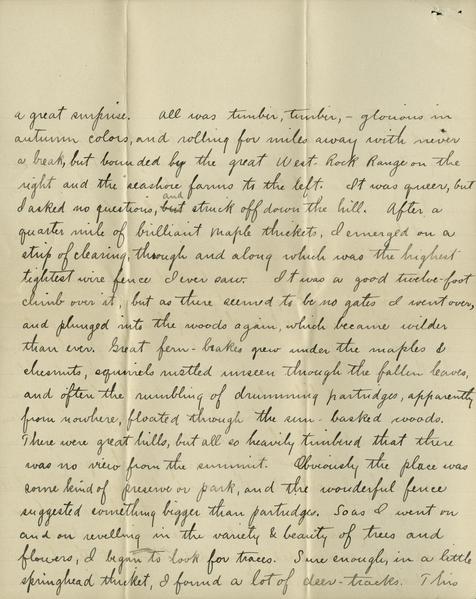 a great surprise. All was timber, timber, - glorious in
autumn colors, and rolling for miles away with never
a break, but bounded by the great West Rock Range on the
right and the seashore farms to the left. It was queer, but
I asked no questions, but and struck off down the hill. After a
quarter mile of brilliant maple thickets, I emerged on a
strip of clearing, through and along which was the highest
tightest wire fence I ever saw. It was a good twelve-foot
climb over it, but as there seemed to be no gates I went over,
and plunged into the woods again, which became wilder
than ever. Great fern-brakes grew under the maples &
chesnuts, squirrels rustled unseen through the fallen leaves,
and often the rumbling of drumming partridges, apparently
from nowhere, floated through the sun-basked woods.
There were great hills, but all so heavily timbered that there
was no view from the summit. Obviously the place was
some kind of preserve or park, and the wonderful fence
suggested something bigger than partridges. So as I went on
and on revelling in the variety & beauty of trees and
flowers, I began to look for traces. Sure enough, in a little
springhead thicket, I found a lot of deer-tracks. This